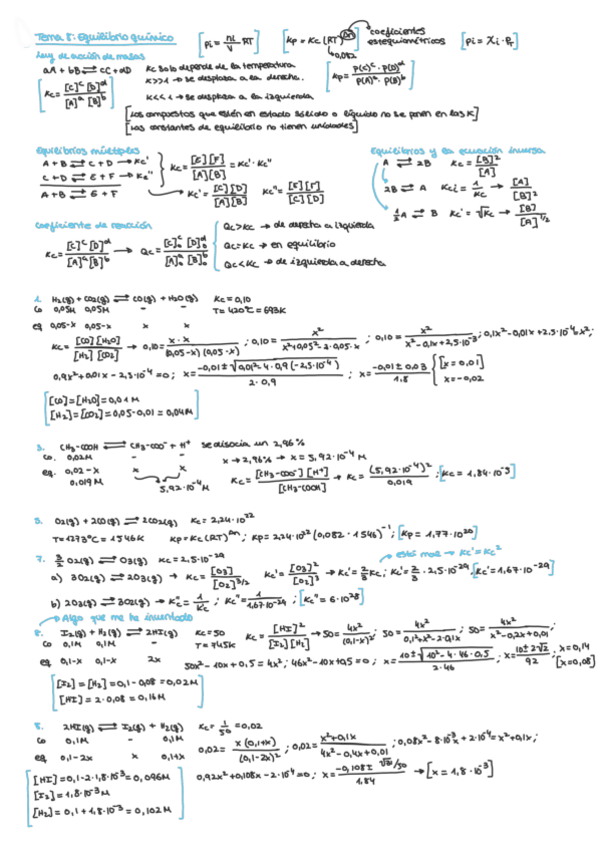 Tema 8: Equilibrio químico
[pi = ni/V RT] [Kp = Kc (RT)^Δn] → coeficientes estequiométricos [pi = Xi · PT]
→ 0,082
Ley de acción de masas
aA + bB ⇌ cC + dD Kc solo depende de la temperatura
[Kc = [C]^c [D]^d / [A]^a [B]^b] K>>1 → se desplaza a la derecha. [Kp = P(C)^c · P(D)^d / P(A)^a · P(B)^b]
K<<1 → se desplaza a la izquierda
[Los compuestos que estén en estado sólido o líquido no se ponen en las K]
[Las constantes de equilibrio no tienen unidades]
Equilibrios múltiples
A + B ⇌ C + D → Kc'
C + D ⇌ E + F → Kc''
A + B ⇌ E + F
Kc = [E][F] / [A][B] = Kc' · Kc''
Kc' = [C][D] / [A][B] Kc'' = [E][F] / [C][D]
Equilibrios y la ecuación inversa
A ⇌ 2B Kc = [B]² / [A]
2B ⇌ A Kci = 1/Kc → [A] / [B]²
½A ⇌ B Kc' = √Kc → [B] / [A]^1/2
Coeficiente de reacción
Kc = [C]^c [D]^d / [A]^a [B]^b → Qc = [C]₀^c [D]₀^d / [A]₀^a [B]₀^b
Qc > Kc → de derecha a izquierda
Qc = Kc → en equilibrio
Qc < Kc → de izquierda a derecha
1. H₂(g) + CO₂(g) ⇌ CO(g) + H₂O(g) Kc = 0,10
Co 0,05M 0,05M - - T = 420ºC = 693K
eq 0,05-x 0,05-x x x
Kc = [CO][H₂O] / [H₂][CO₂] → 0,10 = x · x / (0,05-x)(0,05-x) ; 0,10 = x² / x²+0,05²-2·0,05·x ; 0,10 = x² / x²-0,1x+2,5·10⁻³ ; 0,1x²-0,01x+2,5·10⁻⁴=x²;
0,9x²+0,01x-2,5·10⁻⁴=0; x = -0,01±√0,01²-4·0,9(-2,5·10⁻⁴) / 2·0,9 ; x = -0,01±0,03 / 1,8 [x=0,01] x=-0,02
[CO]=[H₂O]=0,01M
[H₂]=[CO₂]=0,05-0,01=0,04M
3. CH₃-COOH ⇌ CH₃-COO⁻ + H⁺ se disocia un 2,96%
Co. 0,02M - - x → 2,96% → x = 5,92·10⁻⁴ M
eq. 0,02-x x x
0,019M 5,92·10⁻⁴ M
Kc = [CH₃-COO⁻][H⁺] / [CH₃-COOH] → Kc = (5,92·10⁻⁴)² / 0,019 ; [Kc = 1,84·10⁻⁵]
5. O₂(g) + 2CO(g) ⇌ 2CO₂(g) Kc = 2,24·10²²
T = 1273ºC = 1546K Kp = Kc (RT)^Δn ; Kp = 2,24·10²² (0,082·1546)⁻¹ ; [Kp = 1,77·10²⁰]
7. 3/2 O₂(g) ⇌ O₃(g) Kc = 2,5·10⁻²⁹ → está mal → Kc' = Kc²
a) 3O₂(g) ⇌ 2O₃(g) → Kc = [O₃] / [O₂]^3/2 Kc' = [O₃]² / [O₂]³ → Kc' = 2/3 Kc ; Kc' = 2/3 · 2,5·10⁻²⁹ [Kc' = 1,67·10⁻²⁹]
b) 2O₃(g) ⇌ 3O₂(g) → Kc'' = 1/Kc' ; Kc'' = 1 / 1,67·10⁻²⁹ ; [Kc'' = 6·10²⁸]
→ Algo que me he inventado
8. I₂(g) + H₂(g) ⇌ 2HI(g) Kc = 50
Co 0,1M 0,1M - T = 745K
eq 0,1-x 0,1-x 2x
Kc = [HI]² / [I₂][H₂] → 50 = 4x² / (0,1-x)² ; 50 = 4x² / 0,1²+x²-2·0,1x ; 50 = 4x² / x²-0,2x+0,01 ;
50x²-10x+0,5=4x²; 46x²-10x+0,5=0 ; x = 10±√10²-4·46·0,5 / 2·46 ; x = 10±2√2 / 92 x=0,14 [x=0,08]
[I₂]=[H₂]=0,1-0,08=0,02M
[HI]=2·0,08=0,16M
8. 2HI(g) ⇌ I₂(g) + H₂(g) Kc = 1/50 = 0,02
Co 0,1M - 0,1M
eq 0,1-2x x 0,1+x
0,02 = x(0,1+x) / (0,1-2x)² ; 0,02 = x²+0,1x / 4x²-0,4x+0,01 ; 0,08x²-8·10⁻³x+2·10⁻⁴=x²+0,1x;
0,92x²+0,108x-2·10⁻⁴=0; → [x=1,8·10⁻³]
[HI]=0,1-2·1,8·10⁻³=0,096M
[I₂]=1,8·10⁻³M
[H₂]=0,1+1,8·10⁻³=0,102M